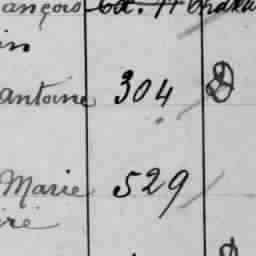 ançois
in
antoine 304
Marie 529
ire